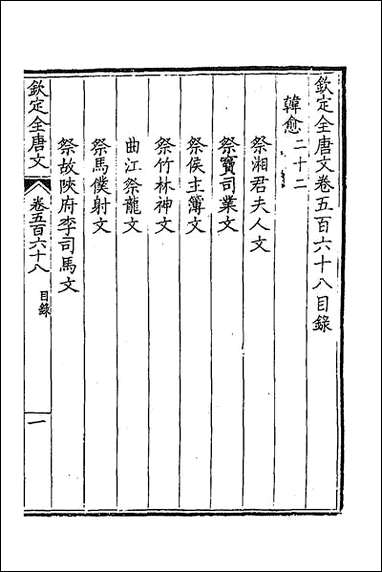 欽定全唐文卷五百六十八目錄
韓愈二十二
祭湘君夫人文
祭竇司業文
祭侯主簿文
祭竹林神文
曲江祭龍文
祭馬僕射文
祭故陝府李司馬文
欽定全唐文 卷五百六十八 目錄 一